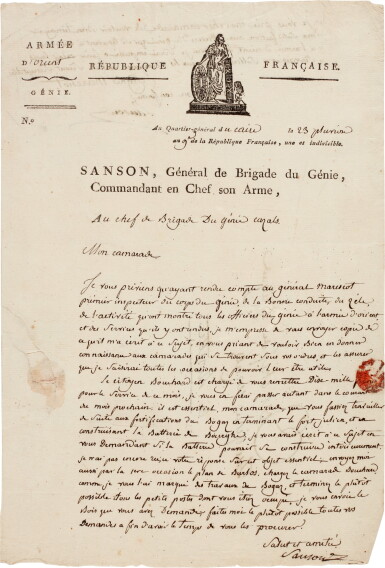 ARMÉE
D'orient
GÉNIE.
N.o
RÉPUBLIQUE FRANÇAISE.
Au Quartier-général du caire le 23 pluviose
an 9e de la République Française, une et indivisible.
SANSON, Général de Brigade du Génie,
Commandant en Chef son Arme,
Au chef de Brigade Du génie cazals
Mon camarade
Je vous préviens qu'ayant rendu compte au général marescot
premier inspecteur du corps du génie de la Bonne conduite, du zèle,
de l'activité qu'ont montré tous les officiers du génie à l'armée d'orient
et des services qu'ils y ont rendus, je m'empresse de vous envoyer copie de
ce qu'il m'a écrit à ce sujet, en vous priant de vouloir Bien en donner
connaissance aux camarades qui se trouvent sous vos ordres, et les assurer
que je saisirai toutes les occasions de pouvoir leur être utile.
Le citoyen Bouchard est chargé de vous remettre Dix mille
pour le service de ce mois, je vous en ferai passer autant dans le courant
du mois prochain il est essentiel, mon camarade, que vous fassiez travailler
de suite aux fortifications du Bogaz en terminant le fort julien, et en
construisant la Batterie de je vous avais écrit à ce sujet en
vous Demandant si la Batterie pouvait se construire
je n'ai pas encore reçu votre réponse sur cet objet essentiel, envoyez moi
aussi par la 1ere occasion le plan de chargez le camarade Bouchard
comme je vous l'ai marqué des travaux de Bogaz et terminez le plutôt
possible tous les petits postes dont vous êtes occupé, je vous enverrai le
Bois que vous avez demandé faites moi le plutôt possible toutes vos
Demandes afin d'avoir le temps de vous les procurer.
Salut et amitié
Sanson